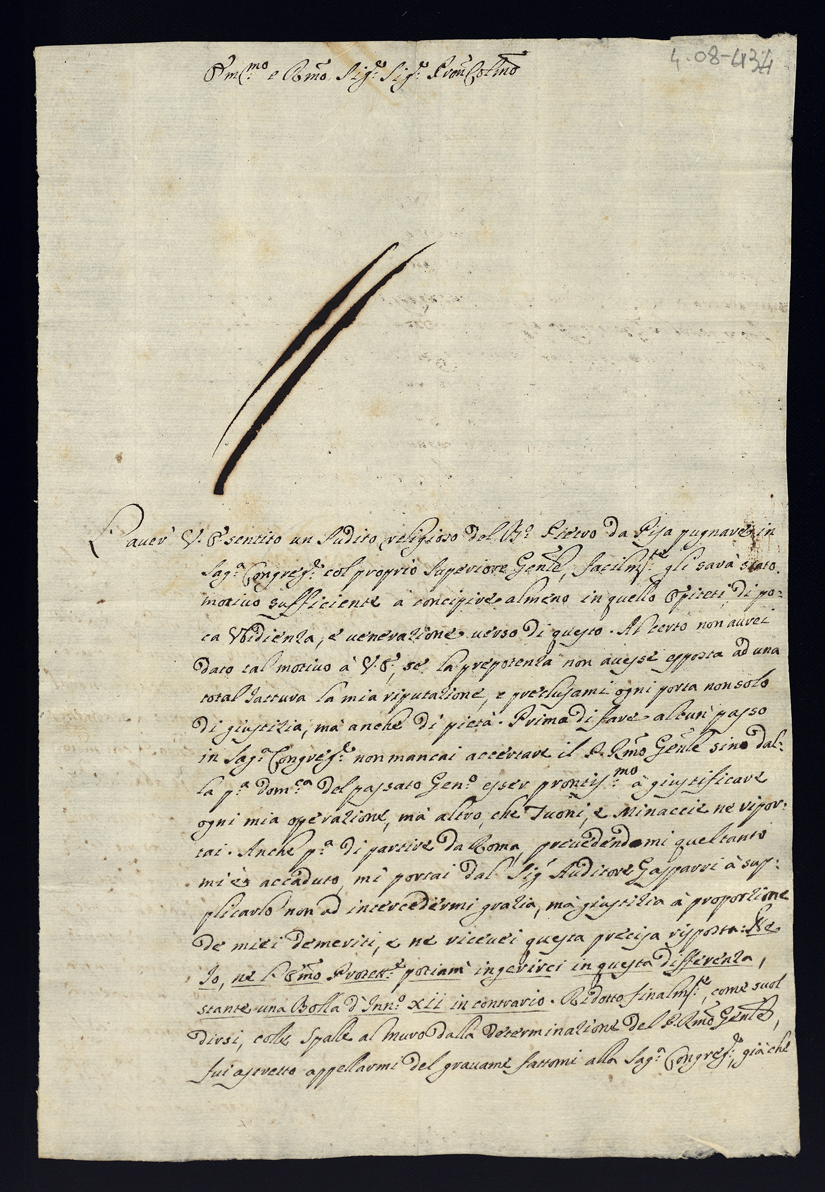 4-08-434
Em.mo e R.mo Sig.e Sig.e Pron Col.mo
L'aver V. E. sentito un Sudito religioso del B.o Pietro da Pisa pugnare in
Sag.a Congreg.e col proprio Superiore Gen̅le, facilm.te gli sarà stato
motivo sufficiente à concipire almeno in quello Epiteti di po-
ca Vbidienza, e venerazione verso di questo. Al certo non aurei
dato tal motivo à V. E., se la prepotenza non avesse esposta ad una
total Jattura la mia riputazione, e preclusami ogni porta non solo
di giustizia, mà anche di pietà. Prima di fare alcun passo
in Sag.a Congreg.e non mancai accertare il P. R.mo Gen̅le sino dal-
la p.a dom.ca del passato Gen.o esser prontis.mo à giustificare
ogni mia operazione, mà altro, che Tuoni, e Minaccie ne ripor-
tai. Anche p.a di partire da Roma prevedendomi quel tanto
mi è accaduto, mi portai dal Sig.r Auditore Gasparri à sup-
plicarlo non ad intercedermi grazia, mà giustizia à proporzione
de miei demeriti, e ne ricevei questa precisa risposta: Ne
Io, ne l'Em̅o Protett.e potiam ingerirci in questa differenza,
stante una Bolla d'Inn.o XII in contrario. Ridotto finalm.te, come suol
dirsi, colle Spale al muro dalla Determinazione del P. R.mo Gen̅le,
fui astretto appellarmi del gravame fattomi alla Sag.a Congreg.e, già che